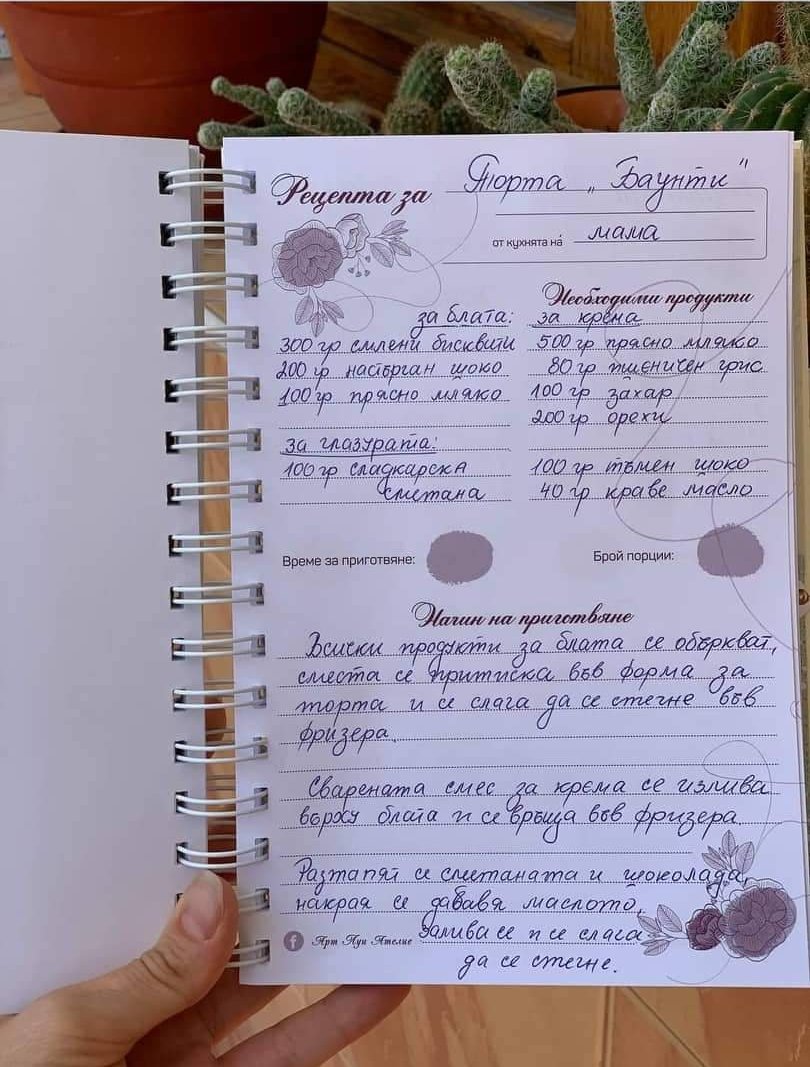 Рецепта за Торта „Баунти"
от кухнята на мама
Необходими продукти
за блата:
300 гр смлени бисквити
200 гр настърган шоко
100 гр прясно мляко
за глазурата:
100 гр сладкарска
сметана
за крема
500 гр прясно мляко
80 гр пшеничен грис
100 гр захар
200 гр орехи
100 гр тъмен шоко
40 гр краве масло
Време за приготвяне:
Брой порции:
Начин на приготвяне
Всички продукти за блата се объркват,
сместа се притиска във форма за
торта и се слага да се стегне във
фризера.
Сварената смес за крема се излива
върху блата и се връща във фризера.
Разтапят се сметаната и шоколада,
накрая се дабавя маслото,
Залива се и се слага
да се стегне.
Арт Пун Ателие